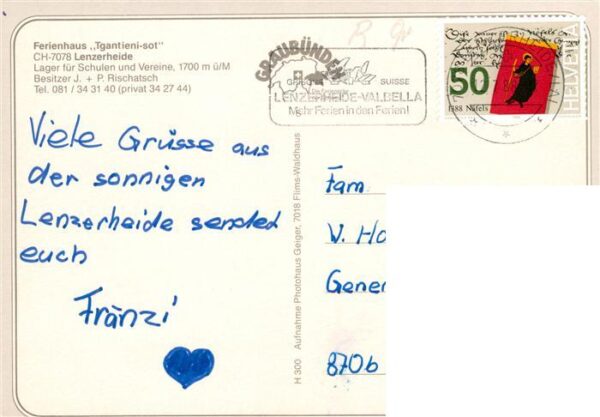 Ferienhaus „Tgantieni-sot"
CH-7078 Lenzerheide
Lager für Schulen und Vereine, 1700 m ü/M
Besitzer J. + P. Rischatsch
Tel. 081 / 34 31 40 (privat 34 27 44)
GRAUBÜNDEN
SUISSE
LENZERHEIDE-VALBELLA
Mehr Ferien in den Ferien!
50
HELVETIA
1388 Näfels
Viele Grüsse aus
der sonnigen
Lenzerheide sendet
euch
Fränzi
H 300 Aufnahme Photohaus Geiger, 7018 Flims-Waldhaus
Fam.
V. Ho
Gener
8706